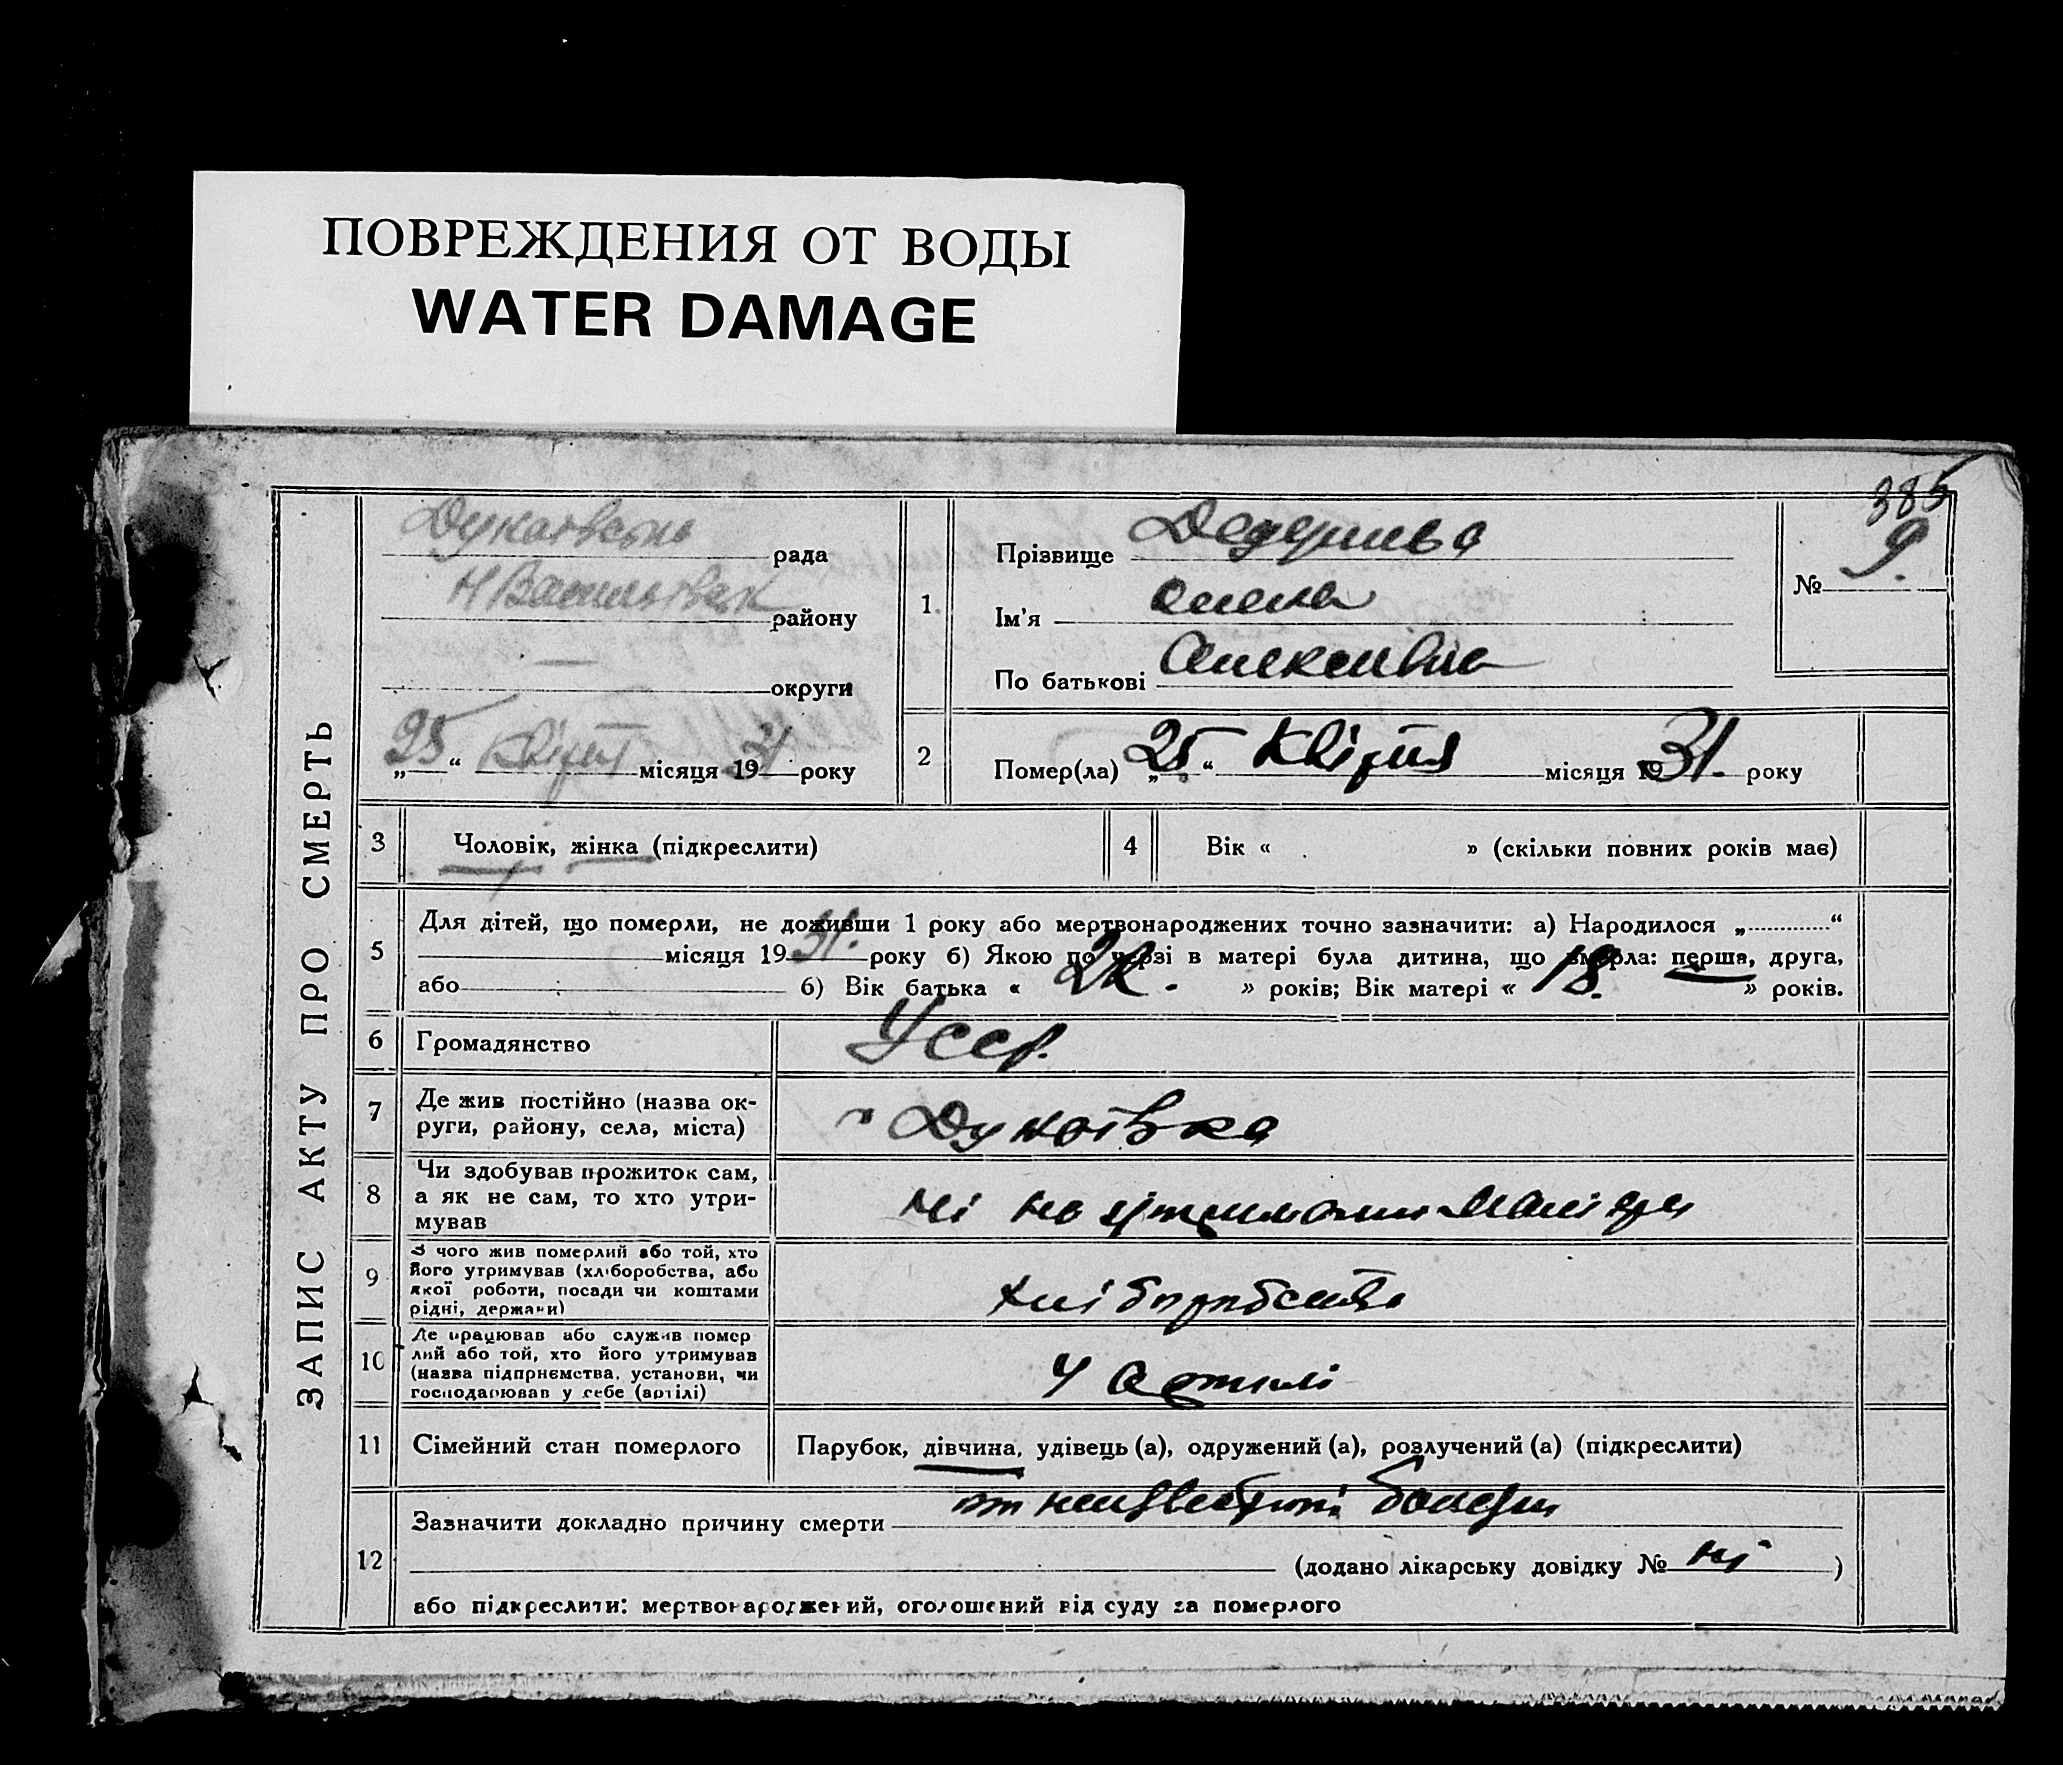 ПОВРЕЖДЕНИЯ ОТ ВОДЫ
WATER DAMAGE
385
ЗАПИС АКТУ ПРО СМЕРТЬ
рада
району
округи
„25“ Квітня місяця 1931 року
1
Прізвище
Ім'я Олена
По батькові
№ 9.
2
Помер(ла) „25“ Квітня місяця 1931. року
3
Чоловік, жінка (підкреслити)
4
Вік « » (скільки повних років має)
5
Для дітей, що померли, не доживши 1 року або мертвонароджених точно зазначити: а) Народилося „ “
місяця 1931. року б) Якою по черзі в матері була дитина, що вмерла: перша, друга,
або б) Вік батька « » років; Вік матері « 18. » років.
6
Громадянство
Усср.
7
Де жив постійно (назва ок-
руги, району, села, міста)
8
Чи здобував прожиток сам,
а як не сам, то хто утри-
мував
ні на
9
З чого жив померлий або той, хто
його утримував (хліборобства, або
якої роботи, посади чи коштами
рідні, держави)
хліборобства
10
Де працював або служив помер
лий або той, хто його утримував
(назва підприємства, установи, чи
господарював у себе (артілі)
У артілі
11
Сімейний стан померлого
Парубок, дівчина, удівець (а), одружений (а), розлучений (а) (підкреслити)
12
Зазначити докладно причину смерти от болезні
(додано лікарську довідку № ні )
або підкреслити: мертвонароджений, оголошений від суду за померлого